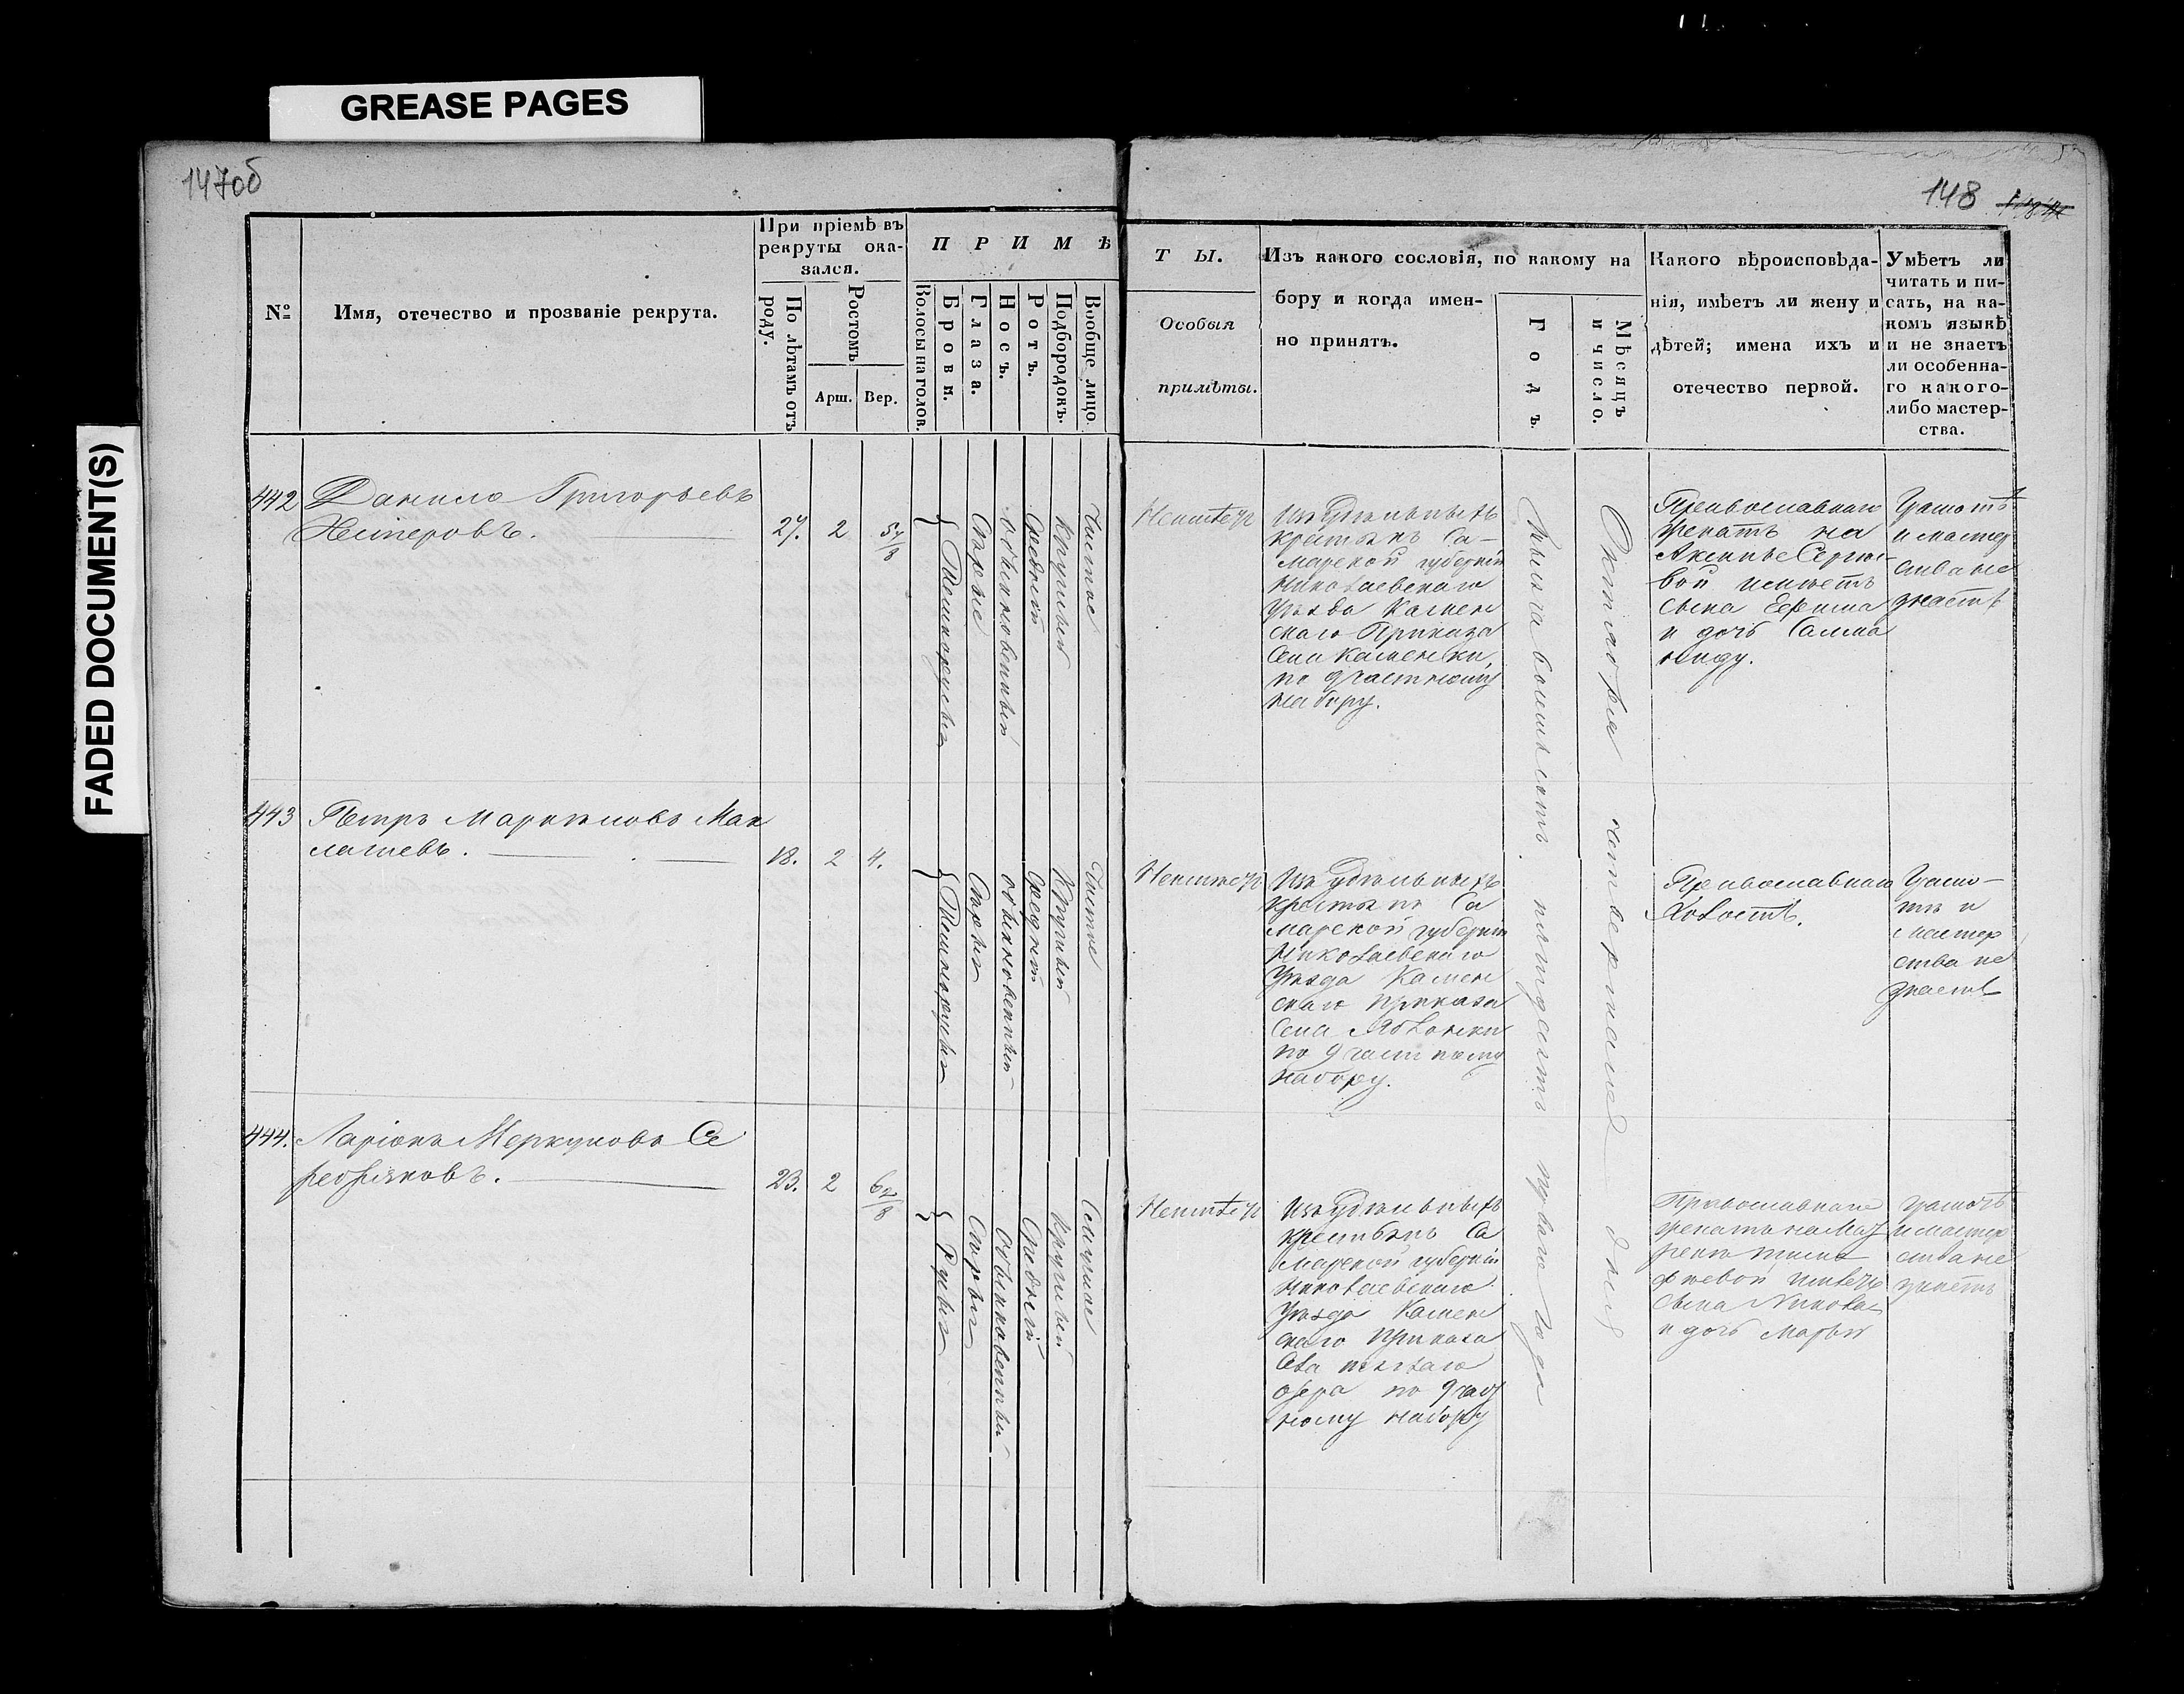 GREASE PAGES
FADED DOCUMENT(S)
147об
148
№
Имя, отечество и прозваніе рекрута.
При пріемѣ въ
рекруты ока-
зался.
По лѣтамъ отъ
роду.
Ростомъ
Арш. Вер.
ПРИМѢ
Волосы на голов.
Брови.
Глаза.
Носъ.
Ротъ.
Подбородокъ.
Вообще лицо.
ТЫ.
Особыя
примѣты.
Изъ какого сословія, по какому на
бору и когда имен-
но принятъ.
Годъ.
Мѣсяцъ
и число.
Какого вѣроисповѣда-
нія, имѣетъ ли жену и
дѣтей; имена ихъ и
отечество первой.
Умѣетъ ли
читать и пи-
сать, на ка-
комъ языкѣ
и не знаетъ
ли особенна-
го какого-
либо мастер-
ства.
442 Данило Григорьевъ
Нестеровъ.
27. 2 5 4/8
Темнорусыя
Сѣрые
обыкновенный
Средній
Круглый
Чистое
Неимѣетъ
Изъ Удѣльныхъ
крестьянъ Са-
марской губерніи
Николаевскаго
Уѣзда Камен
скаго Приказа
Села Каменки,
по 9 частному
набору.
Тысяча восемьсотъ пятьдесятъ перваго года
Октября четвертаго дня
Православнаго
женатъ на
Аксиньѣ Сергѣе-
вой имѣетъ
сына Ефима
и дочь Соломо
ниду.
Грамотѣ
и мастер
ства не
знаетъ
443 Петръ Маркеловъ Мак
лашевъ.
18. 2 4.
Темнорусыя
Сѣрыя
обыкновенный
Средній
Круглый
Чистое
Неимѣетъ
Изъ Удѣльныхъ
крестьянъ Са
марской губерніи
Николаевскаго
Уѣзда Камен
скаго приказа
Села Яблонки
по 9 частному
набору.
Православнаго
Холостъ.
Грамо-
тѣ и
мастер
ства не
знаетъ
444. Ларіонъ Меркуловъ Се
ребряковъ.
23. 2 6 2/8
Русыя
Сѣрыя
обыкновенный
Средній
Круглый
Неимѣетъ
Изъ Удѣльныхъ
крестьянъ Са
марской губерніи
Николаевскаго
Уѣзда Камен
скаго Приказа
озера по 9 част
ному набору
Православнаго
женатъ на
имѣетъ
сына Никола
и дочь Марью
грамотѣ
и мастер
ства не
знаетъ